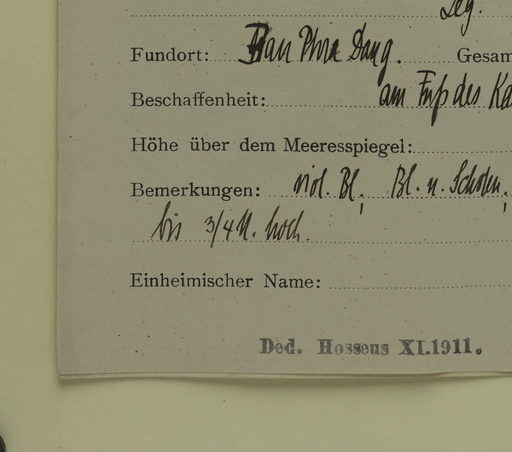 Leg.
Fundort: Ban Phra Dang. Gesam
Beschaffenheit: am Fuß des Ka
Höhe über dem Meeresspiegel:
Bemerkungen: viol. Bl., Bl. u. Schoten,
bis 3/4 M. hoch.
Einheimischer Name:
Ded. Hosseus XI.1911.